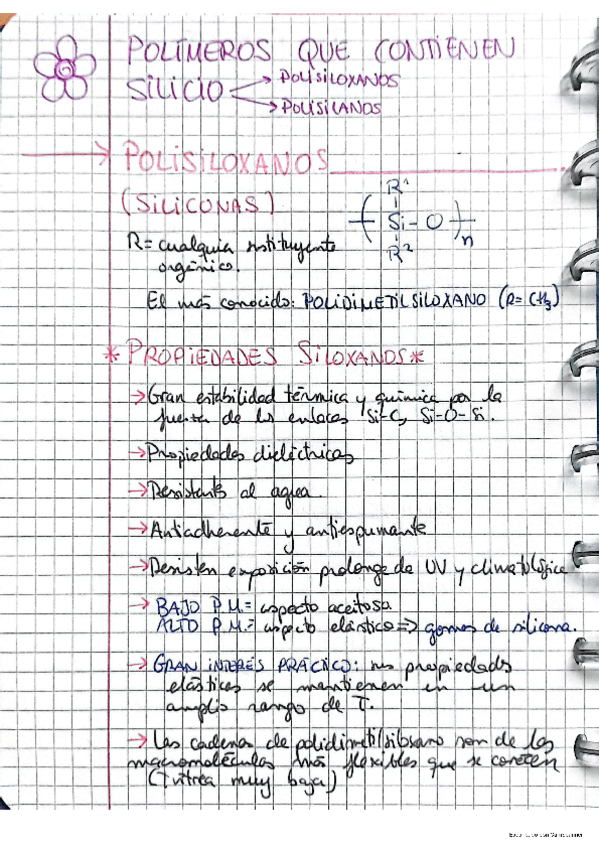 POLÍMEROS QUE CONTIENEN
SILICIO → POLISILOXANOS
→ POLISILANOS
→ POLISILOXANOS
(SILICONAS)
R¹
( Si - O )n
R²
R = cualquier sustituyente
orgánico.
El más conocido: POLIDIMETILSILOXANO (R = CH3)
* PROPIEDADES SILOXANOS *
→ Gran estabilidad térmica y química por la
fuerza de los enlaces Si-C, Si-O-Si.
→ Propiedades dieléctricas
→ Resistente al agua.
→ Antiadherente y antiespumante
→ Resisten exposición prolongada UV y climatológica
→ BAJO P.M. = aspecto aceitoso.
ALTO P.M. = aspecto elástico ⇒ gomas de silicona.
→ GRAN INTERÉS PRÁCTICO: sus propiedades
elásticas se mantienen en un
amplio rango de T.
→ Las cadenas de polidimetilsiloxano son de las
macromoléculas más flexibles que se conocen
(T vítrea muy baja)